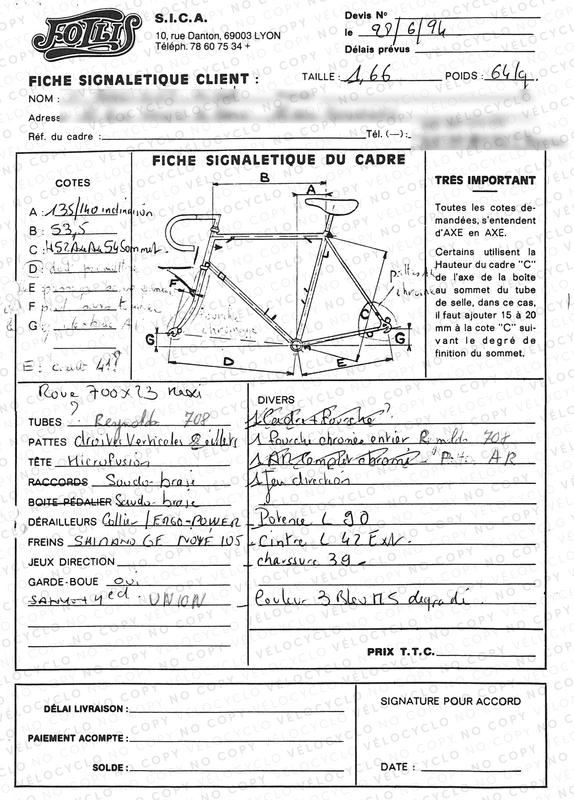 FOLLIS
S.I.C.A.
10, rue Danton, 69003 LYON
Téléph. 78 60 75 34 +
Devis N°
le 28/6/94
Délais prévus
FICHE SIGNALETIQUE CLIENT :
TAILLE : 1,66 POIDS : 64/
NOM :
Adress
Réf. du cadre : Tél. (—) :
FICHE SIGNALETIQUE DU CADRE
COTES
A : 135/140 inclinaison
B : 53,5
C : 54 Sommet.
D
E
F
G
E :
B
A
F
C
G
D
E
G
Fourche
chromage
TRÈS IMPORTANT
Toutes les cotes de-
mandées, s'entendent
d'AXE en AXE.
Certains utilisent la
Hauteur du cadre "C"
de l'axe de la boîte
au sommet du tube
de selle, dans ce cas,
il faut ajouter 15 à 20
mm à la cote "C" sui-
vant le degré de
finition du sommet.
Roue 700x23 Maxi
?
TUBES Reynolds 708
PATTES droites Verticales 2 œillets
TÊTE Microfusion
RACCORDS Soudo-brasé
BOITE-PÉDALIER Soudo-brasé
DÉRAILLEURS Collier / ERGO-POWER
FREINS SHIMANO GE 105
JEUX DIRECTION
GARDE-BOUE oui
UNION
DIVERS
1 Cadre + Fourche ?
1 Fourche chromée entier 708
1 AR Complet chromé AR
1 Jeu direction
Potence L 90
Cintre L 42 Ext.
chaussure 39
Couleur 3 Bleu MS dégradé.
PRIX T.T.C.
DÉLAI LIVRAISON :
PAIEMENT ACOMPTE :
SOLDE :
SIGNATURE POUR ACCORD
DATE :
VÉLOCYCLO NO COPY